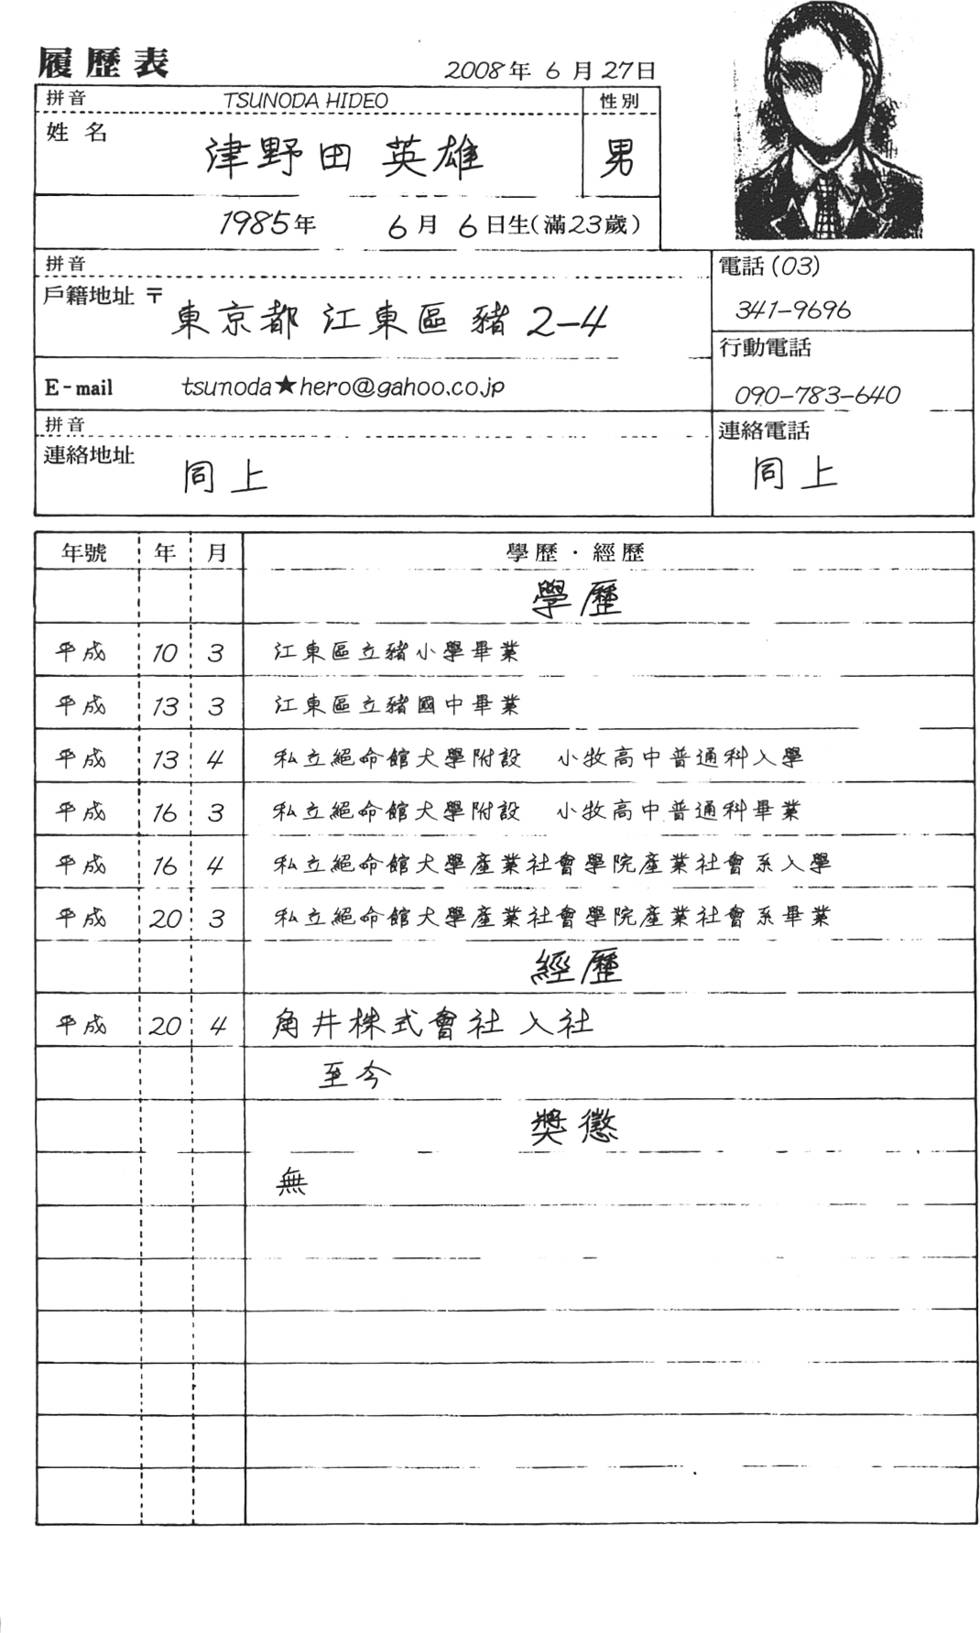 履歷表
2008年 6月27日
拼音 TSUNODA HIDEO 性別
姓名 津野田 英雄 男
1985年 6月 6日生(滿23歲)
拼音
戶籍地址 〒 東京都 江東區 豬 2-4
電話 (03)
341-9696
E-mail tsunoda★hero@gahoo.co.jp
行動電話
090-783-640
拼音
連絡地址 同上
連絡電話
同上
年號 年 月 學歷・經歷
學歷
平成 10 3 江東區立豬小學畢業
平成 13 3 江東區立豬國中畢業
平成 13 4 私立絕命館大學附設 小牧高中普通科入學
平成 16 3 私立絕命館大學附設 小牧高中普通科畢業
平成 16 4 私立絕命館大學產業社會學院產業社會系入學
平成 20 3 私立絕命館大學產業社會學院產業社會系畢業
經歷
平成 20 4 角井株式會社 入社
至今
獎懲
無